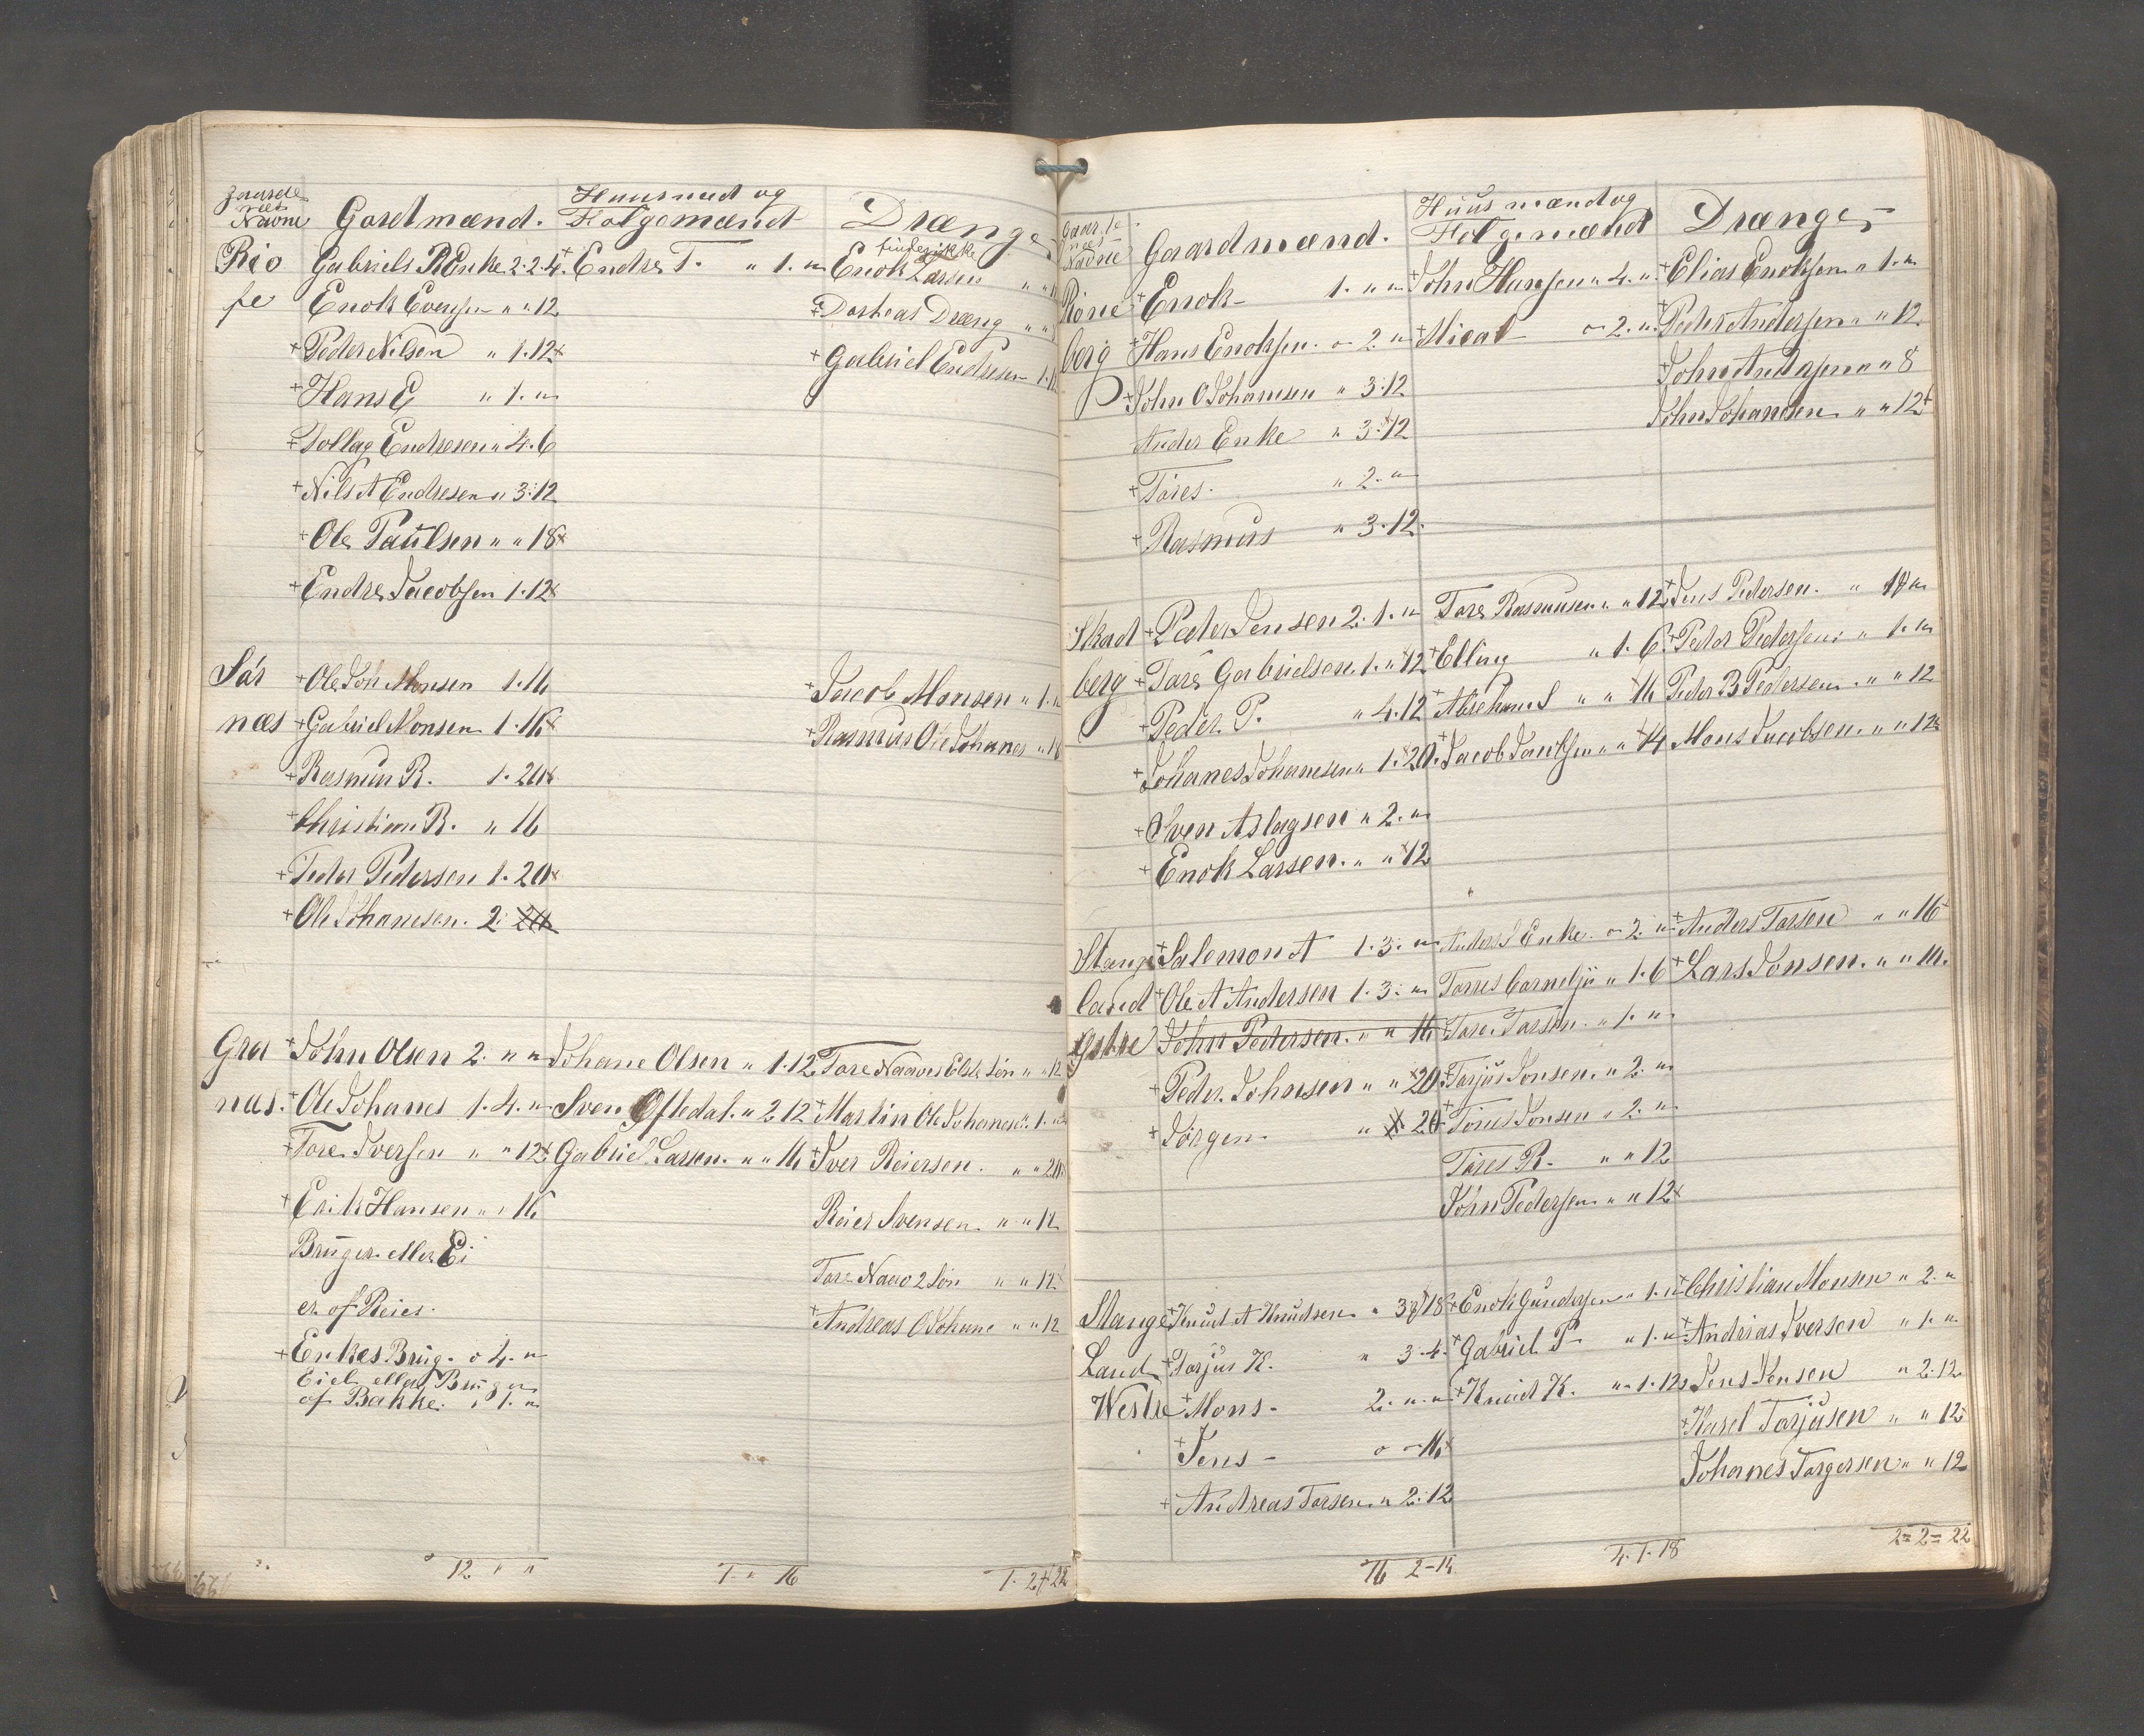 Navne Gardmænd. Huusmed og Folgemænd Drænge
Rio Gabriels P Enke. 2. 2. 4. + Endre T. " 1. " Enok Larsen
fe Enok Evensen " " 12
+ Peder Nilsen " 1. 12 + Dorteas Dræng " "
+ Hans E " 1. " + Gabriel Endresen 1.
+ Tollag Endresen " 4. 6
+ Nils A Endresen " 3. 12
+ Ole Paulsen " " 18
+ Endre Jacobsen 1. 12
Sør + Ole Joh Monsen 1. 16 + Jacob Monsen " 1.
næs + Gabriel Monsen 1. 16 + Rasmus Ole Johanes
+ Rasmus R. 1. 20
+ Christian R. " 16
+ Peder Pedersen 1. 20
+ Ole Johanesen. 2.
Gra + John Olsen 2. " " Johane Olsen " 1. 12 Tore Naaves Elste Søn " " 12
næs. + Ole Johanes 1. 4. " Sven Oftedal. " 2 12 + Martin Ole Johanes " 1.
+ Tore Iversen " " 12 Gabriel Larsen. " " 16 + Iver Reiersen. " " 20
+ Erik Hansen " " 16 Reier Svensen " " 12
Bruger eller Ei
er of Reier. Tore Naav 2 Søn " " 12
+ Enkes Brug. 4. " + Andreas O Johane " " 12
Eiel eller Bruger
of Bakke. " 1. "
12 " " 1. " 16 1. 2 22
Navne Gaardmænd. Huusmænd og Folgemænd Drænge
Røne + Enok - 1. " " + John Hansen " 4. " + Elias Enoksen " 1. "
berg + Hans Enoksen. " 2. " + Micael " 2. " + Peder Andersen " " 12
+ John O Johanesen " 3. 12 + John Andasen " " 8
Ander Enke " 3. 12 John Johansen " " 12
+ Tores. " 2. "
+ Rasmus " 3. 12.
Skad + Peder Jensen 2. 1. " Tore Rasmusen " " 12 + Jens Pedersen. "
berg + Tore Gabrielsen. 1. " 12 + Elling " 1. 6. + Peder Pedersen " 1. "
+ Peder P. " 4. 12 + Abreham S " " 16 Peder B Pedersen. " " 12
+ Johanes Johanesen " 1. 20. + Jacob Jacobsen " " 14 Mons Jacobsen. " " 12
+ Sven Aslagsen " 2. "
+ Enok Larsen. " " 12
Stange + Salemon A 1. 3. " Anders S Enke. " 2. " + Anders Torsen " " 16
land + Ole A Andersen 1. 3. " Torres Cornelju " 1. 6 + Lars Jonsen. " " 10.
Østre John Pedersen. " " 16 Tore Torsen. " 1. "
+ Peder Johnsen " " 20 + Tarjus Jonsen. " 2. "
+ Jørgen " 20 + Tores Jonsen " 2. "
Tores R. " " 12
John Pedersen " " 12
Stange + Knud A Knudsen " 3 18 + Enok Gundersen " 1. " + Christian Monsen " 2. "
Land + Torjus K. " 3. 4. + Gabriel P " 1. " + Andrias Iversen " 1. "
Westre + Mons - 2. " " + Knud K. " 1. 12 Jens Jensen " 2. 12
+ Jens - 16 + Karel Torjusen " " 12
+ Andreas Torsen. " 2. 12 Johanes Torgersen " " 12
16 2 - 14 4. 1. 18 2 = 2 = 22